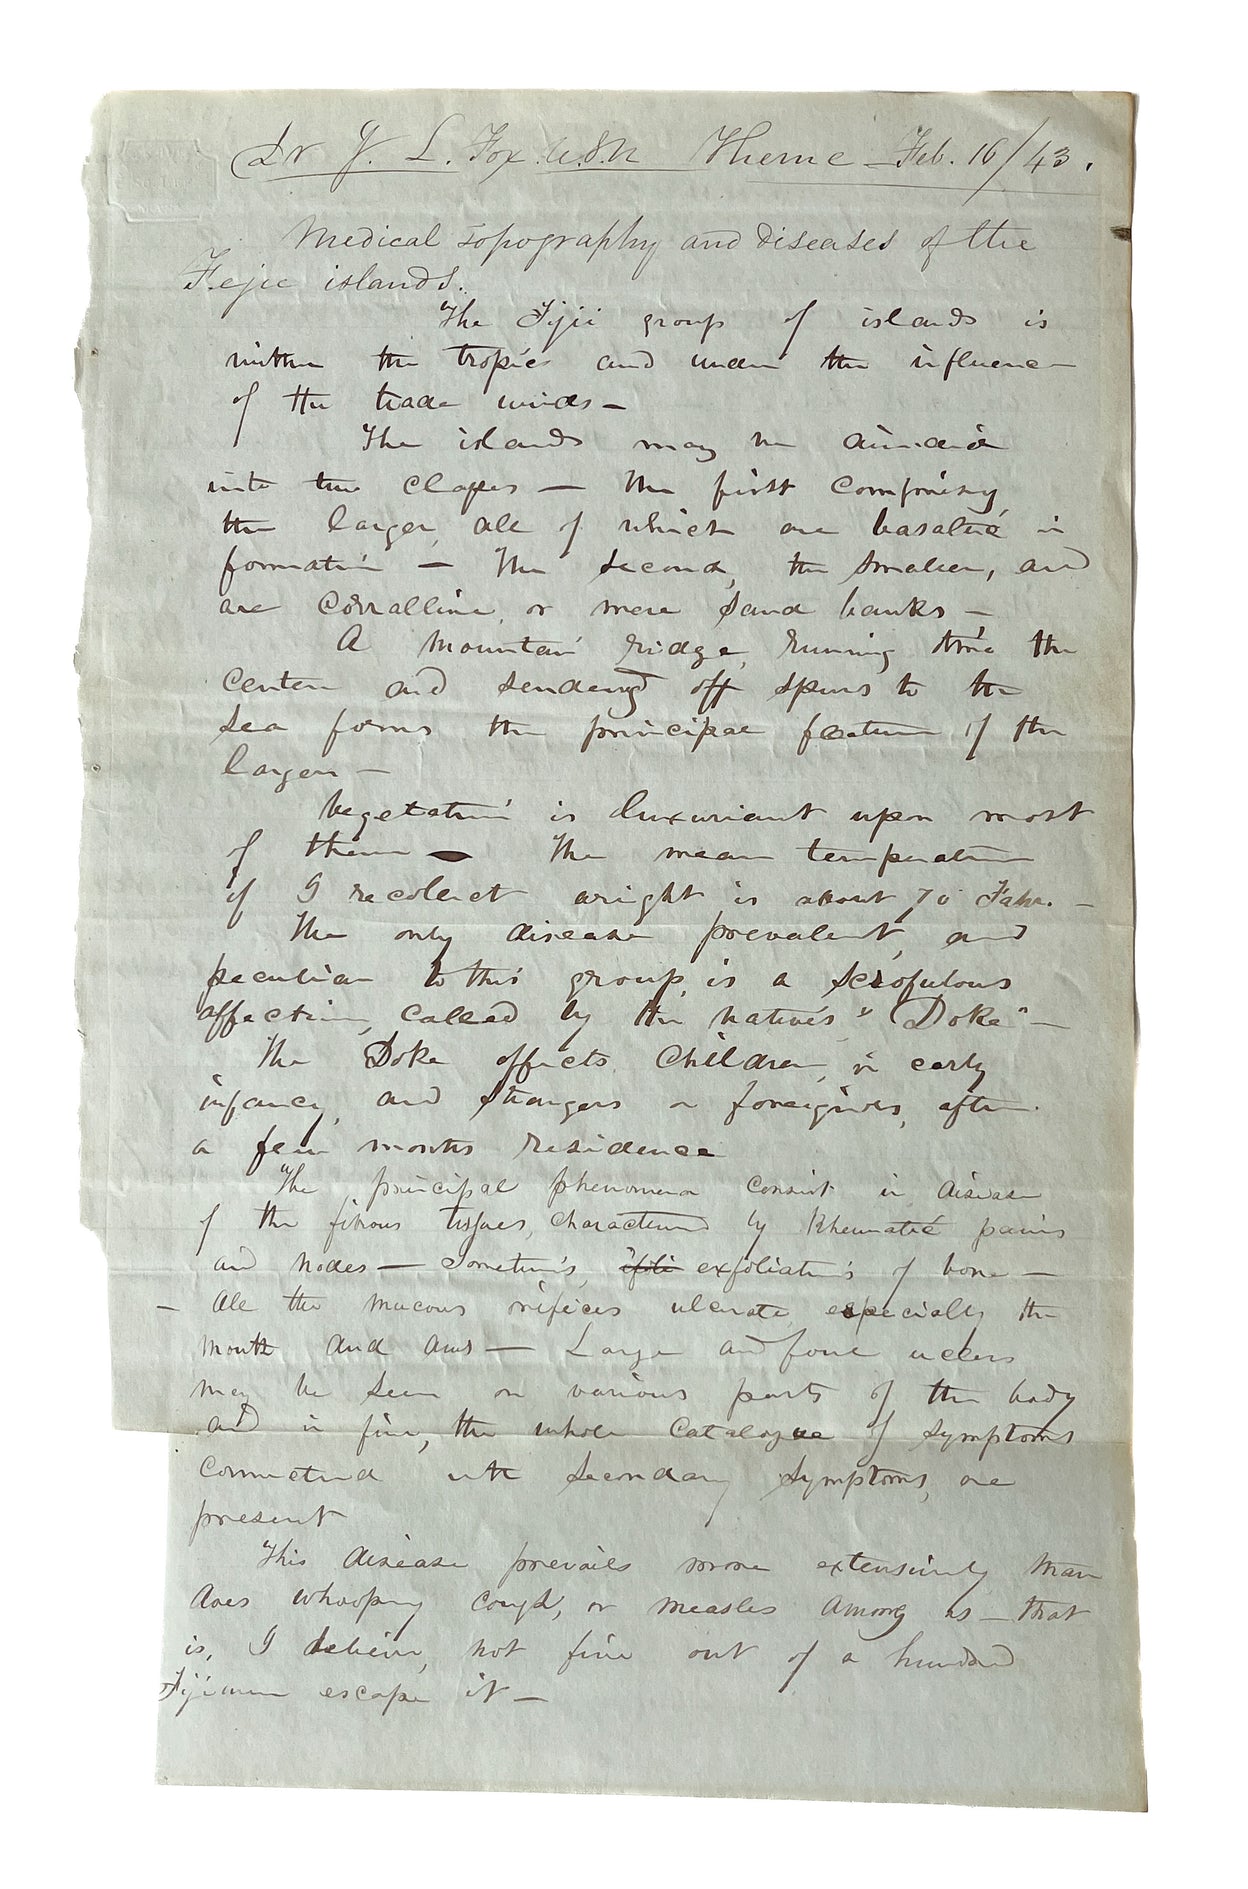 Dr J. L. Fox U.S.N Theme Feb. 16/43.
Medical Topography and diseases of the
Fejee islands.
The Fijii group of islands is
within the tropics and under the influence
of the trade winds —
The islands may be divided
into two classes — the first comprising
the larger, all of which are basaltic in
formation — The second, the smaller, and
are corralline, or mere sand banks —
A mountain ridge, running thro' the
center and sending off spurs to the
sea forms the principal feature of the
larger —
Vegetation is luxuriant upon most
of them — The mean temperature
if I recollect aright is about 70 Fahr. —
The only disease prevalent, and
peculiar to this group, is a scrofulous
affection, called by the natives "Doke" —
The Doke affects children, in early
infancy, and strangers or foreigners, after
a few months residence
The principal phenomena consist in disease
of the fibrous tissues, characterised by Rheumatic pains
and nodes — Sometimes, exfoliations of bone —
— All the mucous orifices ulcerate, especially the
mouth and anus — Large and foul ulcers
may be seen on various parts of the body
and in fine, the whole catalogue of symptoms
connected with secondary symptoms, are
present
This disease prevails more extensively than
does whooping cough, or measles among us — that
is, I believe, not five out of a hundred
Fijimen escape it —